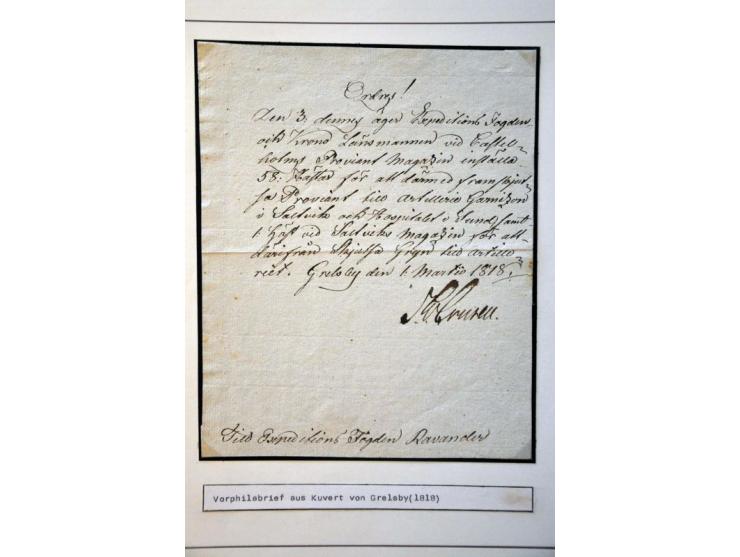 Ordres!
Den 3, dennes äger Expeditions Fogden
och Krono Länsmannen vid Castel-
holms Proviant Magazin inställa
58: Hästar för att därmed framskjut-
sa Proviant till Artillerie Garnizon
i Saltvik och Hospitalet i Sund, samt
1. Häst vid Saltviks Magazin för att
därifrån skjutsa Gryn till Artille-
riet. Grelsby den 1. Martio 1818.
Till Expeditions Fogden Ravander
Vorphilabrief aus Kuvert von Grelsby(1818)